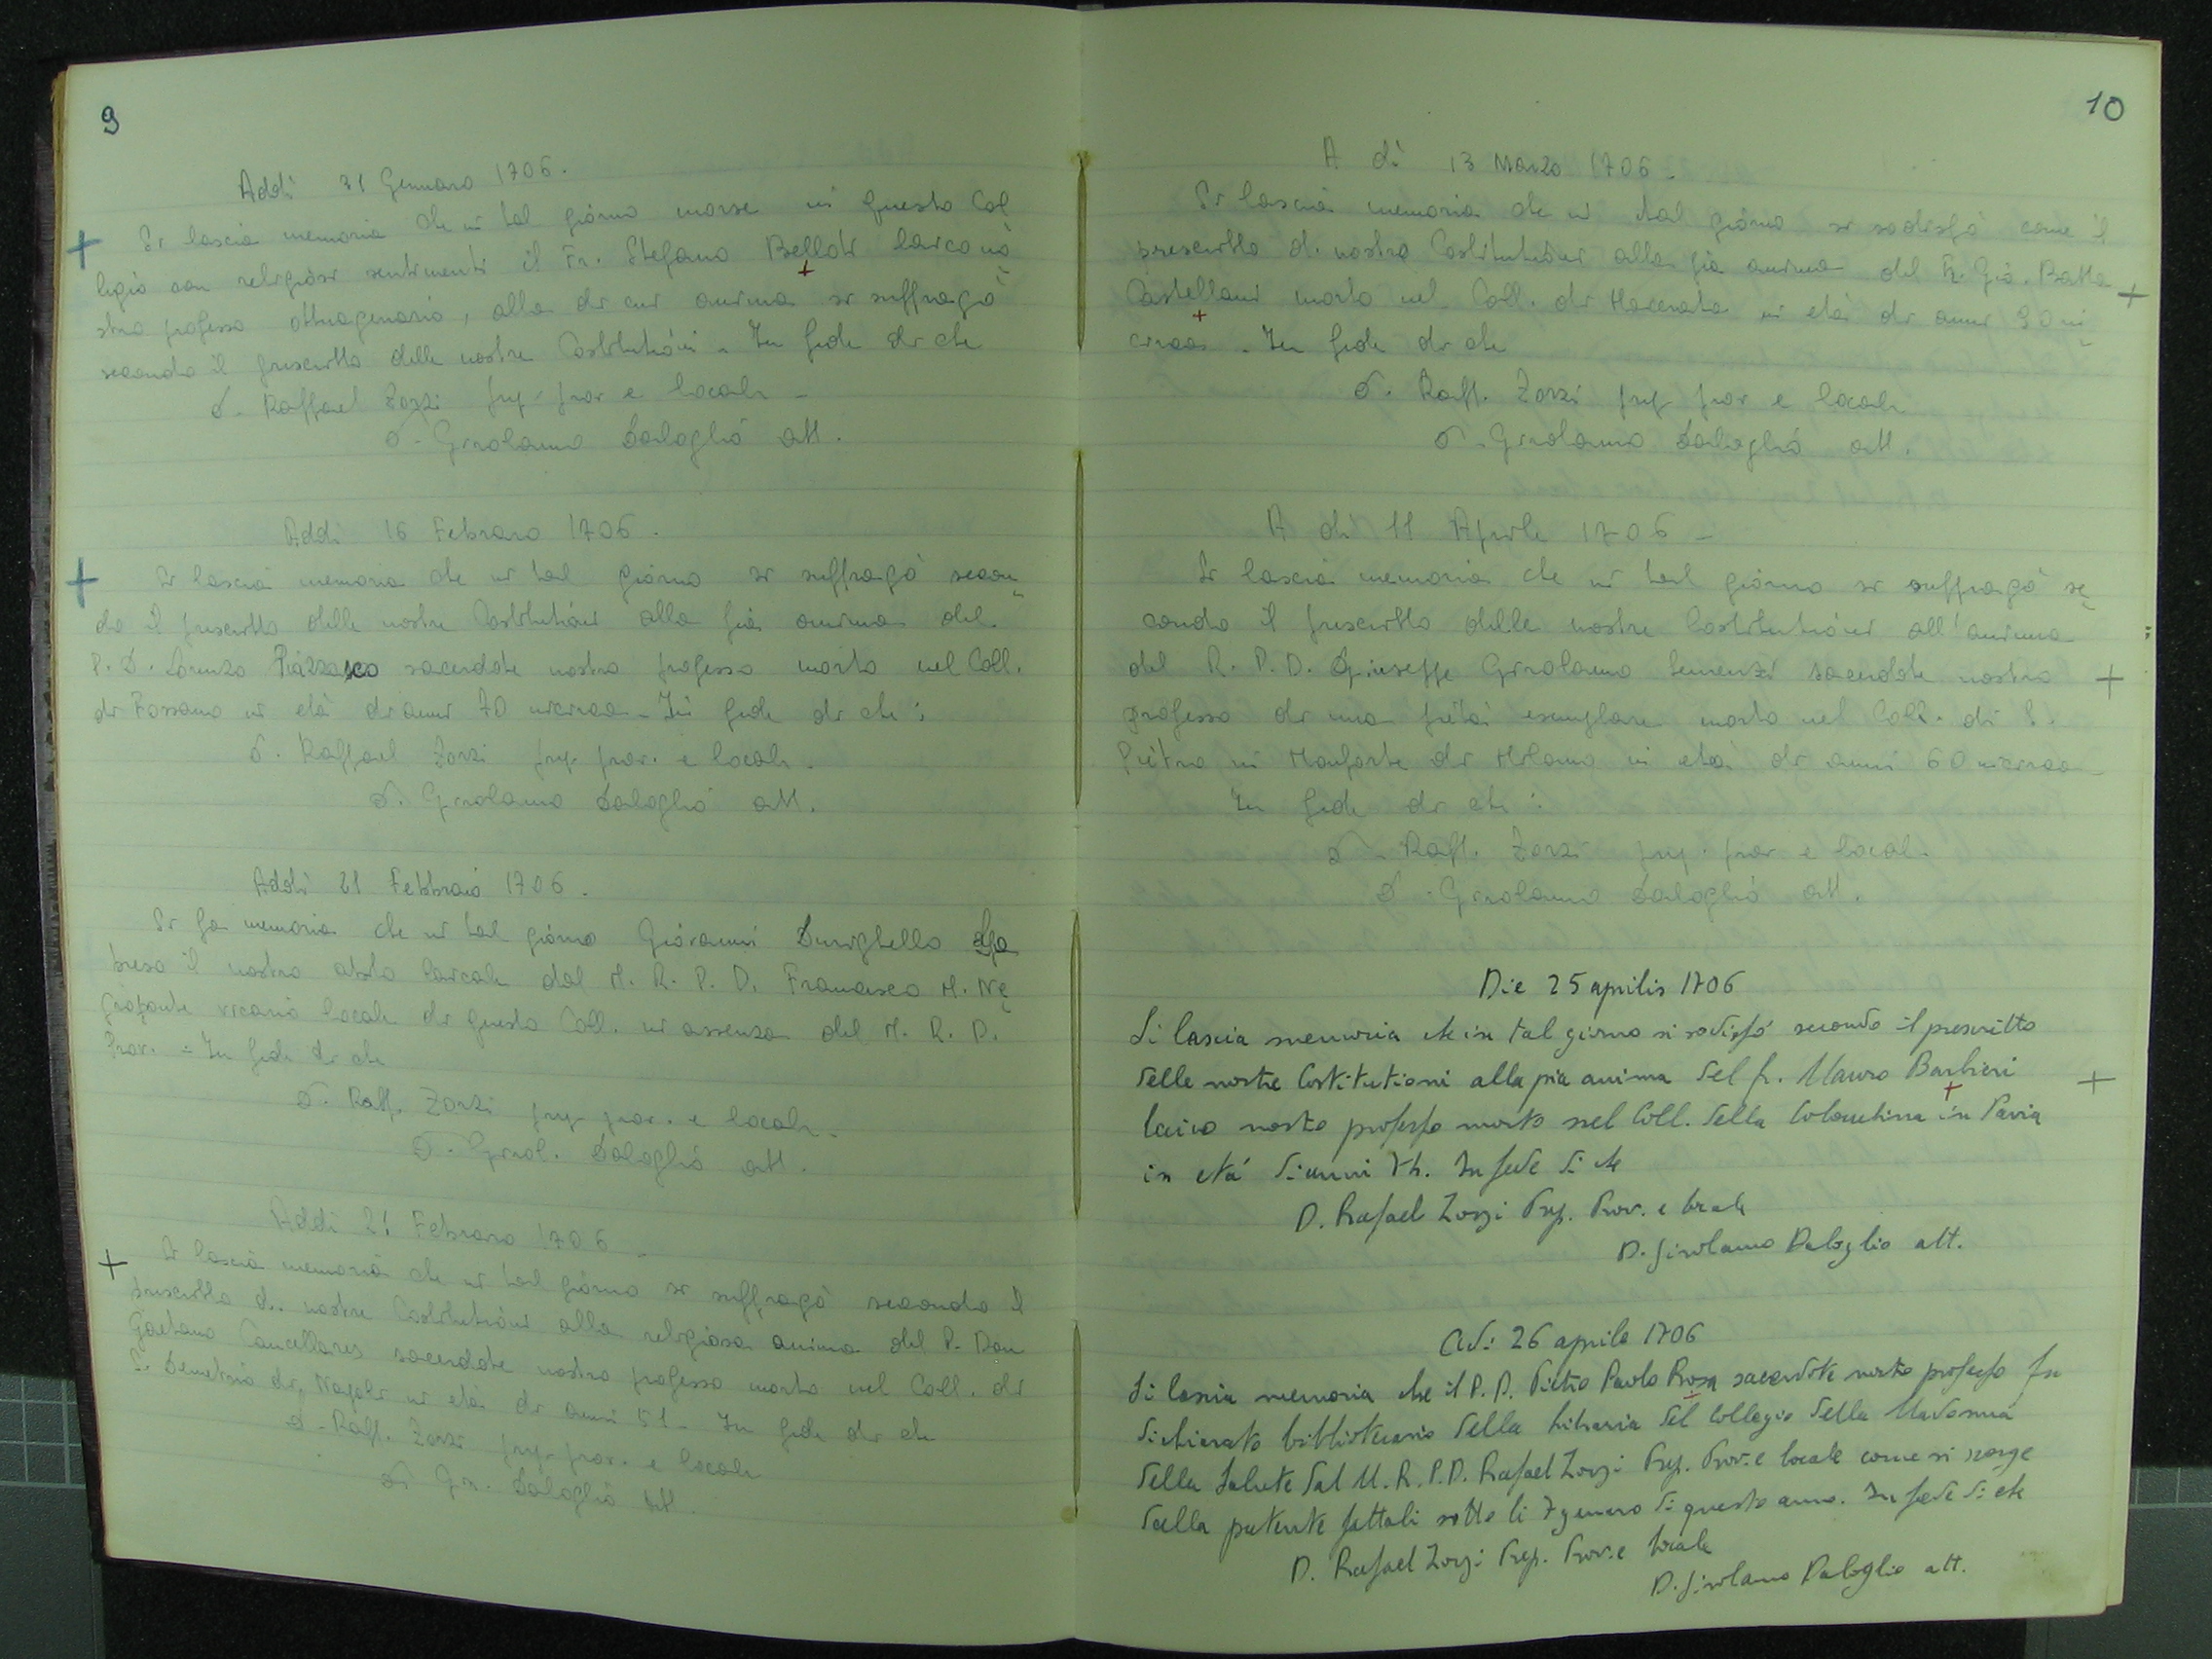 9
Addì 21 Gennaro 1706.
Si lascia memoria che in tal giorno morse in questo Col
legio con religiosi sentimenti il Fr. Stefano Belloti laico no
stro professo ottuagenario, alla di cui anima si suffragò
secondo il prescritto delle nostre Costitutioni. In fede di che
D. Raffael Zorzi prep. prov e locale
D. Girolamo Daloglio att.
Addì 16 Febraro 1706.
Si lascia memoria che in tal giorno si suffragò secon
do il prescritto delle nostre Costitutioni alla pia anima del
P. D. Lorenzo Piazzasco sacerdote nostro professo morto nel Coll.
di Fossano in età di anni 70 incirca. In fede di che:
D. Raffael Zorzi prep. prov. e locale.
D. Girolamo Daloglio att.
Addì 21 Febbraio 1706.
Si fa memoria che in tal giorno Giovanni Durighello
prese il nostro abito laicale dal M. R. P. D. Francesco M. Ne
groponte vicario locale di questo Coll. in assenza del M. R. P.
Prov. = In fede di che
D. Raff. Zorzi prep prov. e locale.
D. Girol. Daloglio att.
Addì 21 Febraro 1706
Si lascia memoria che in tal giorno si suffragò secondo il
prescritto d. nostre Costitutioni alla religiosa anima del P. Don
Gaetano Cancellares sacerdote nostro professo morto nel Coll. di
S. Demetrio di Napoli in età di anni 51. In fede di che
D. Raff. Zorzi prep. prov. e locale
D. Gir. Daloglio att.
10
A dì 13 Marzo 1706.
Si lascia memoria che in tal giorno si sodisfò come il
prescritto d. nostre Costitutioni alla pia anima del Fr. Gio. Batta
Castellani morto nel Coll. di Macerata in età di anni 90 in
circa. In fede di che
D. Raff. Zorzi prep prov e locale
D. Girolamo Daloglio att.
A dì 11 Aprile 1706
Si lascia memoria che in tal giorno si suffragò se
condo il prescritto delle nostre Costitutioni all'anima
del R. P. D. Giuseppe Girolamo Semenzi sacerdote nostro
professo di una pietà esemplare morto nel Coll. di S.
Pietro in Monforte di Milano in età di anni 60 incirca
In fede di che:
D. Raff. Zorzi prep. prov e local.
D. Girolamo Daloglio att.
Die 25 aprilis 1706
Si lascia memoria che in tal giorno si sodisfò secondo il prescritto
delle nostre Costitutioni alla pia anima del fr. Mauro Barbieri
laico nostro professo morto nel Coll. della Colombina in Pavia
in età di anni 74. In fede di che
D. Rafael Zorzi Prep. Prov. e locale
D. Girolamo Daloglio att.
Adi 26 aprile 1706
Si lascia memoria che il P. D. Pietro Paolo Rosa sacerdote nostro professo fu
dichiarato bibliotecario della libraria del Collegio della Madonna
della Salute dal M. R. P. D. Rafael Zorzi Prep. Prov. e locale come si scorge
dalla patente fattali sotto li 7 genaro di questo anno. In fede di che
D. Rafael Zorzi Prep. Prov. e locale
D. Girolamo Daloglio att.